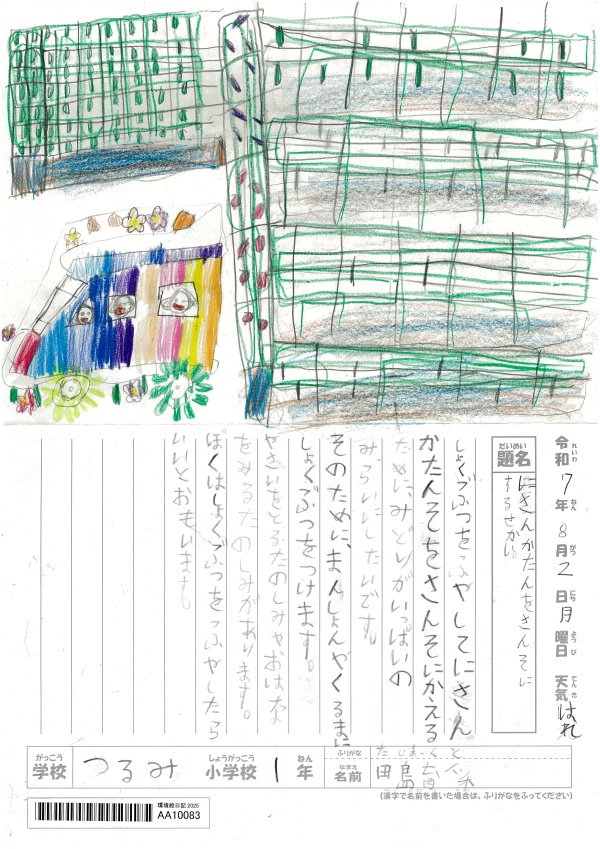 令和7年8月2日月曜日 天気はれ
れいわ ねん がつ にち ようび てんき
だいめい
題名
にさんかたんをさんそに
するせかい
しょくぶつをふやしてにさん
かたんそをさんそにかえる
ために、みどりがいっぱいの
みらいにしたいです。
そのために、まんしょんやくるまに
しょくぶつをつけます。
やさいをとるたのしみやおはな
をみるたのしみがあります。
ぼくはしょくぶつをふやしたら
いいとおもいます。
がっこう
学校
つるみ
しょうがっこう
小学校
1
ねん
年
ふりがな
なまえ
名前
田島
(漢字で名前を書いた場合は、ふりがなをふってください)
環境絵日記 2025
AA10083